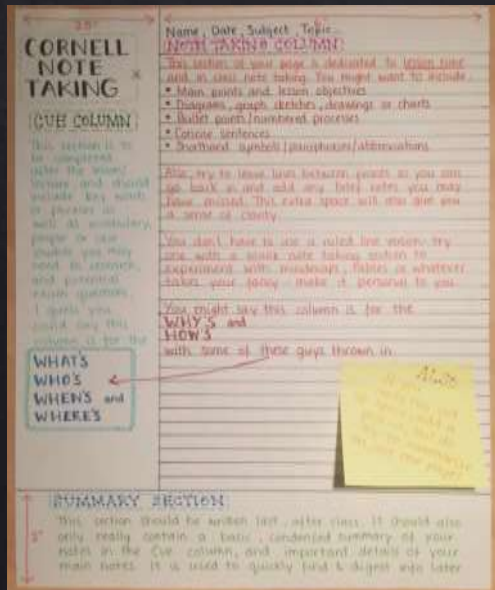 2.5"
CORNELL
NOTE
TAKING
CUE COLUMN
This section is to
be completed
after the lesson/
lecture and should
include key words
or phrases as
well as vocabulary,
people or case
studies you may
need to research,
and potential
exam questions.
I guess you
could say this
column is for the
WHAT'S
WHO'S
WHEN'S and
WHERE'S
Name, Date, Subject, Topic
NOTE TAKING COLUMN
This section of your page is dedicated to lesson time
and in class note taking. You might want to include:
• Main points and lesson objectives
• Diagrams, graph sketches, drawings or charts
• Bullet points/numbered processes
• Concise sentences
• Shorthand symbols/paraphrases/abbreviations
Also, try to leave lines between points so you can
go back in and add any notes you may
have missed. This extra space will also give you
a sense of clarity.
You don't have to use a ruled line version, try
one with a note taking section to
experiment with mindmaps, tables or whatever
takes your fancy - make it personal to you.
You might say this column is for the
WHY'S and
HOW'S
with some of these guys thrown in.
Also
SUMMARY SECTION
2"
This section should be written last, after class. It should also
only really contain a basic, condensed summary of your
notes in the Cue column, and important details of your
main notes. It is used to quickly find & digest info later